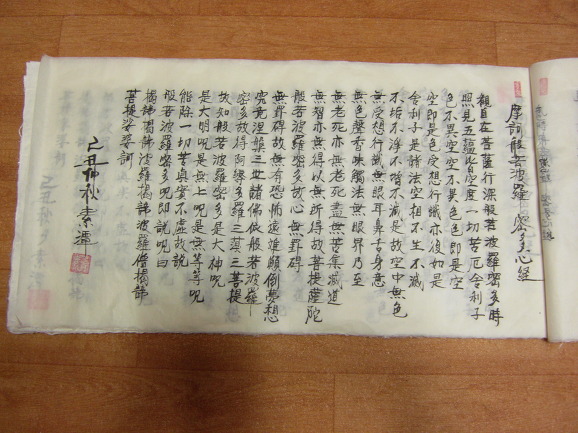 摩訶般若波羅蜜多心經
觀自在菩薩行深般若波羅密多時
照見五蘊皆空度一切苦厄舍利子
色不異空空不異色色即是空
空即是色受想行識亦復如是
舍利子是諸法空相不生不滅
不垢不淨不增不減是故空中無色
無受想行識無眼耳鼻舌身意
無色聲香味觸法無眼界乃至
無老死亦無老死盡無苦集滅道
無智亦無得以無所得故菩提薩陀
般若波羅密多故心無罣碍
無罣碍故無有恐怖遠離顛倒夢想
究竟涅槃三世諸佛依般若波羅
密多故得阿耨多羅三藐三菩提
故知般若波羅密多是大神呪
是大明呪是無上呪是無等等呪
能除一切苦真實不虛故說
般若波羅密多呪即說呪曰
揭諦揭諦波羅揭諦波羅僧揭諦
菩提娑婆訶
己丑仲秋 素